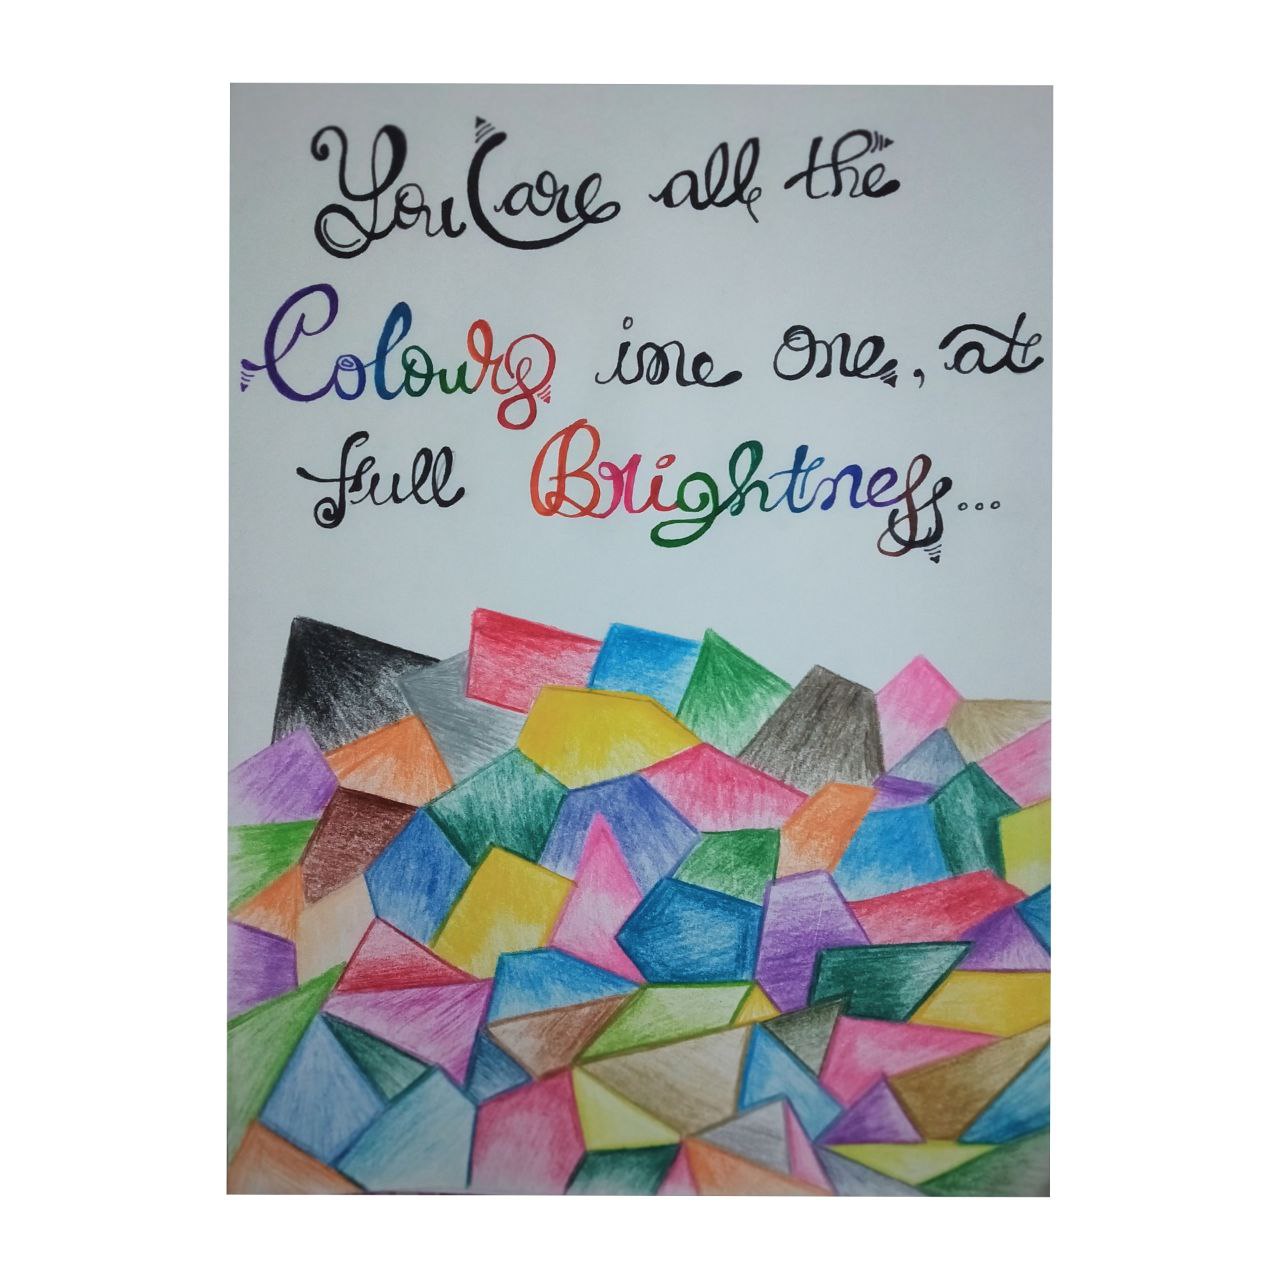 You are all the
Colours in one, at
full Brightness...